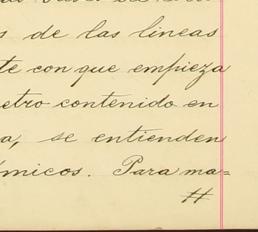 s de las lineas
te con que empieza
etro contenido en
a, se entienden
micos. Para ma=